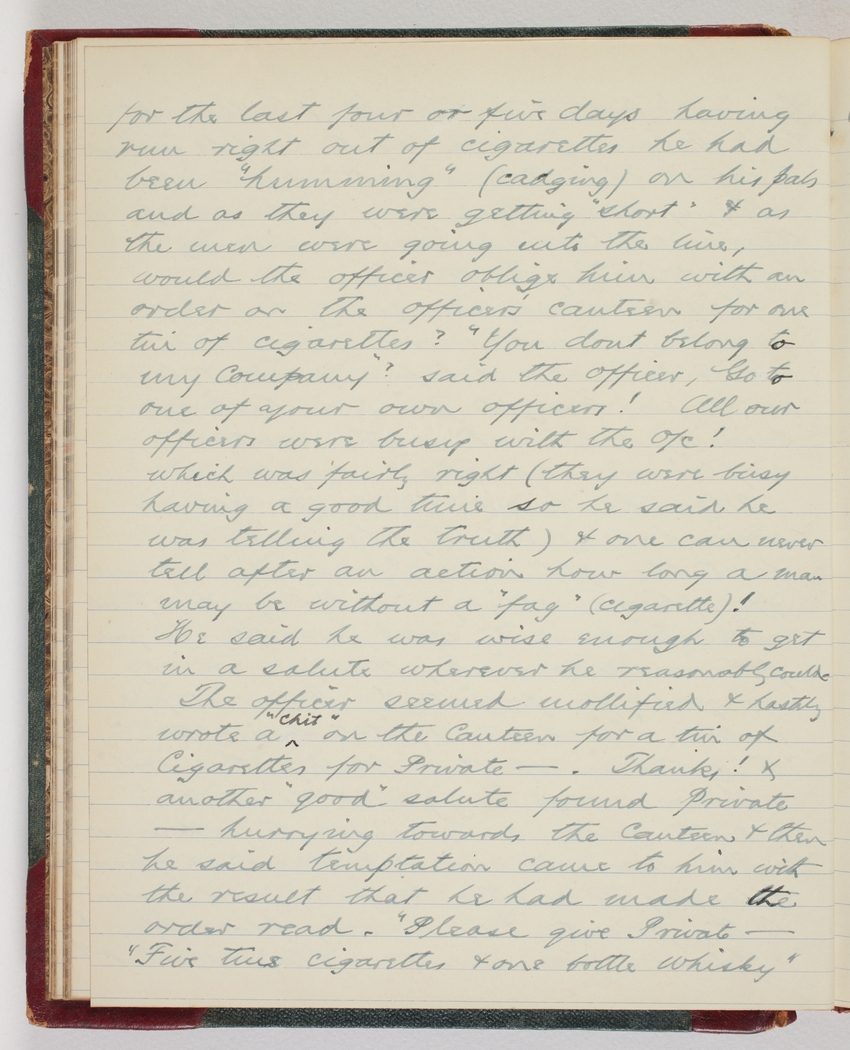 for the last four or five days having
run right out of cigarettes he had
been "humming" (cadging) on his pals
and as they were getting "short" & as
the men were going into the line,
would the officer oblige him with an
order on the officers' canteen for one
tin of cigarettes? "You dont belong to
my Company"? said the officer, Go to
one of your own officers! All our
officers were busy with the O/c!
which was fairly right (they were busy
having a good time so he said he
was telling the truth) & one can never
tell after an action how long a man
may be without a "fag" (cigarette)!
He said he was wise enough to get
in a salute wherever he reasonably could.
The officer seemed mollified & hastly
wrote a "chit" on the Canteen for a tin of
Cigarettes for Private — . Thanks! &
another "good" salute found Private
— hurrying towards the Canteen & then
he said temptation came to him with
the result that he had made the
order read. "Please give Private —
"Five tins cigarettes & one bottle whisky"